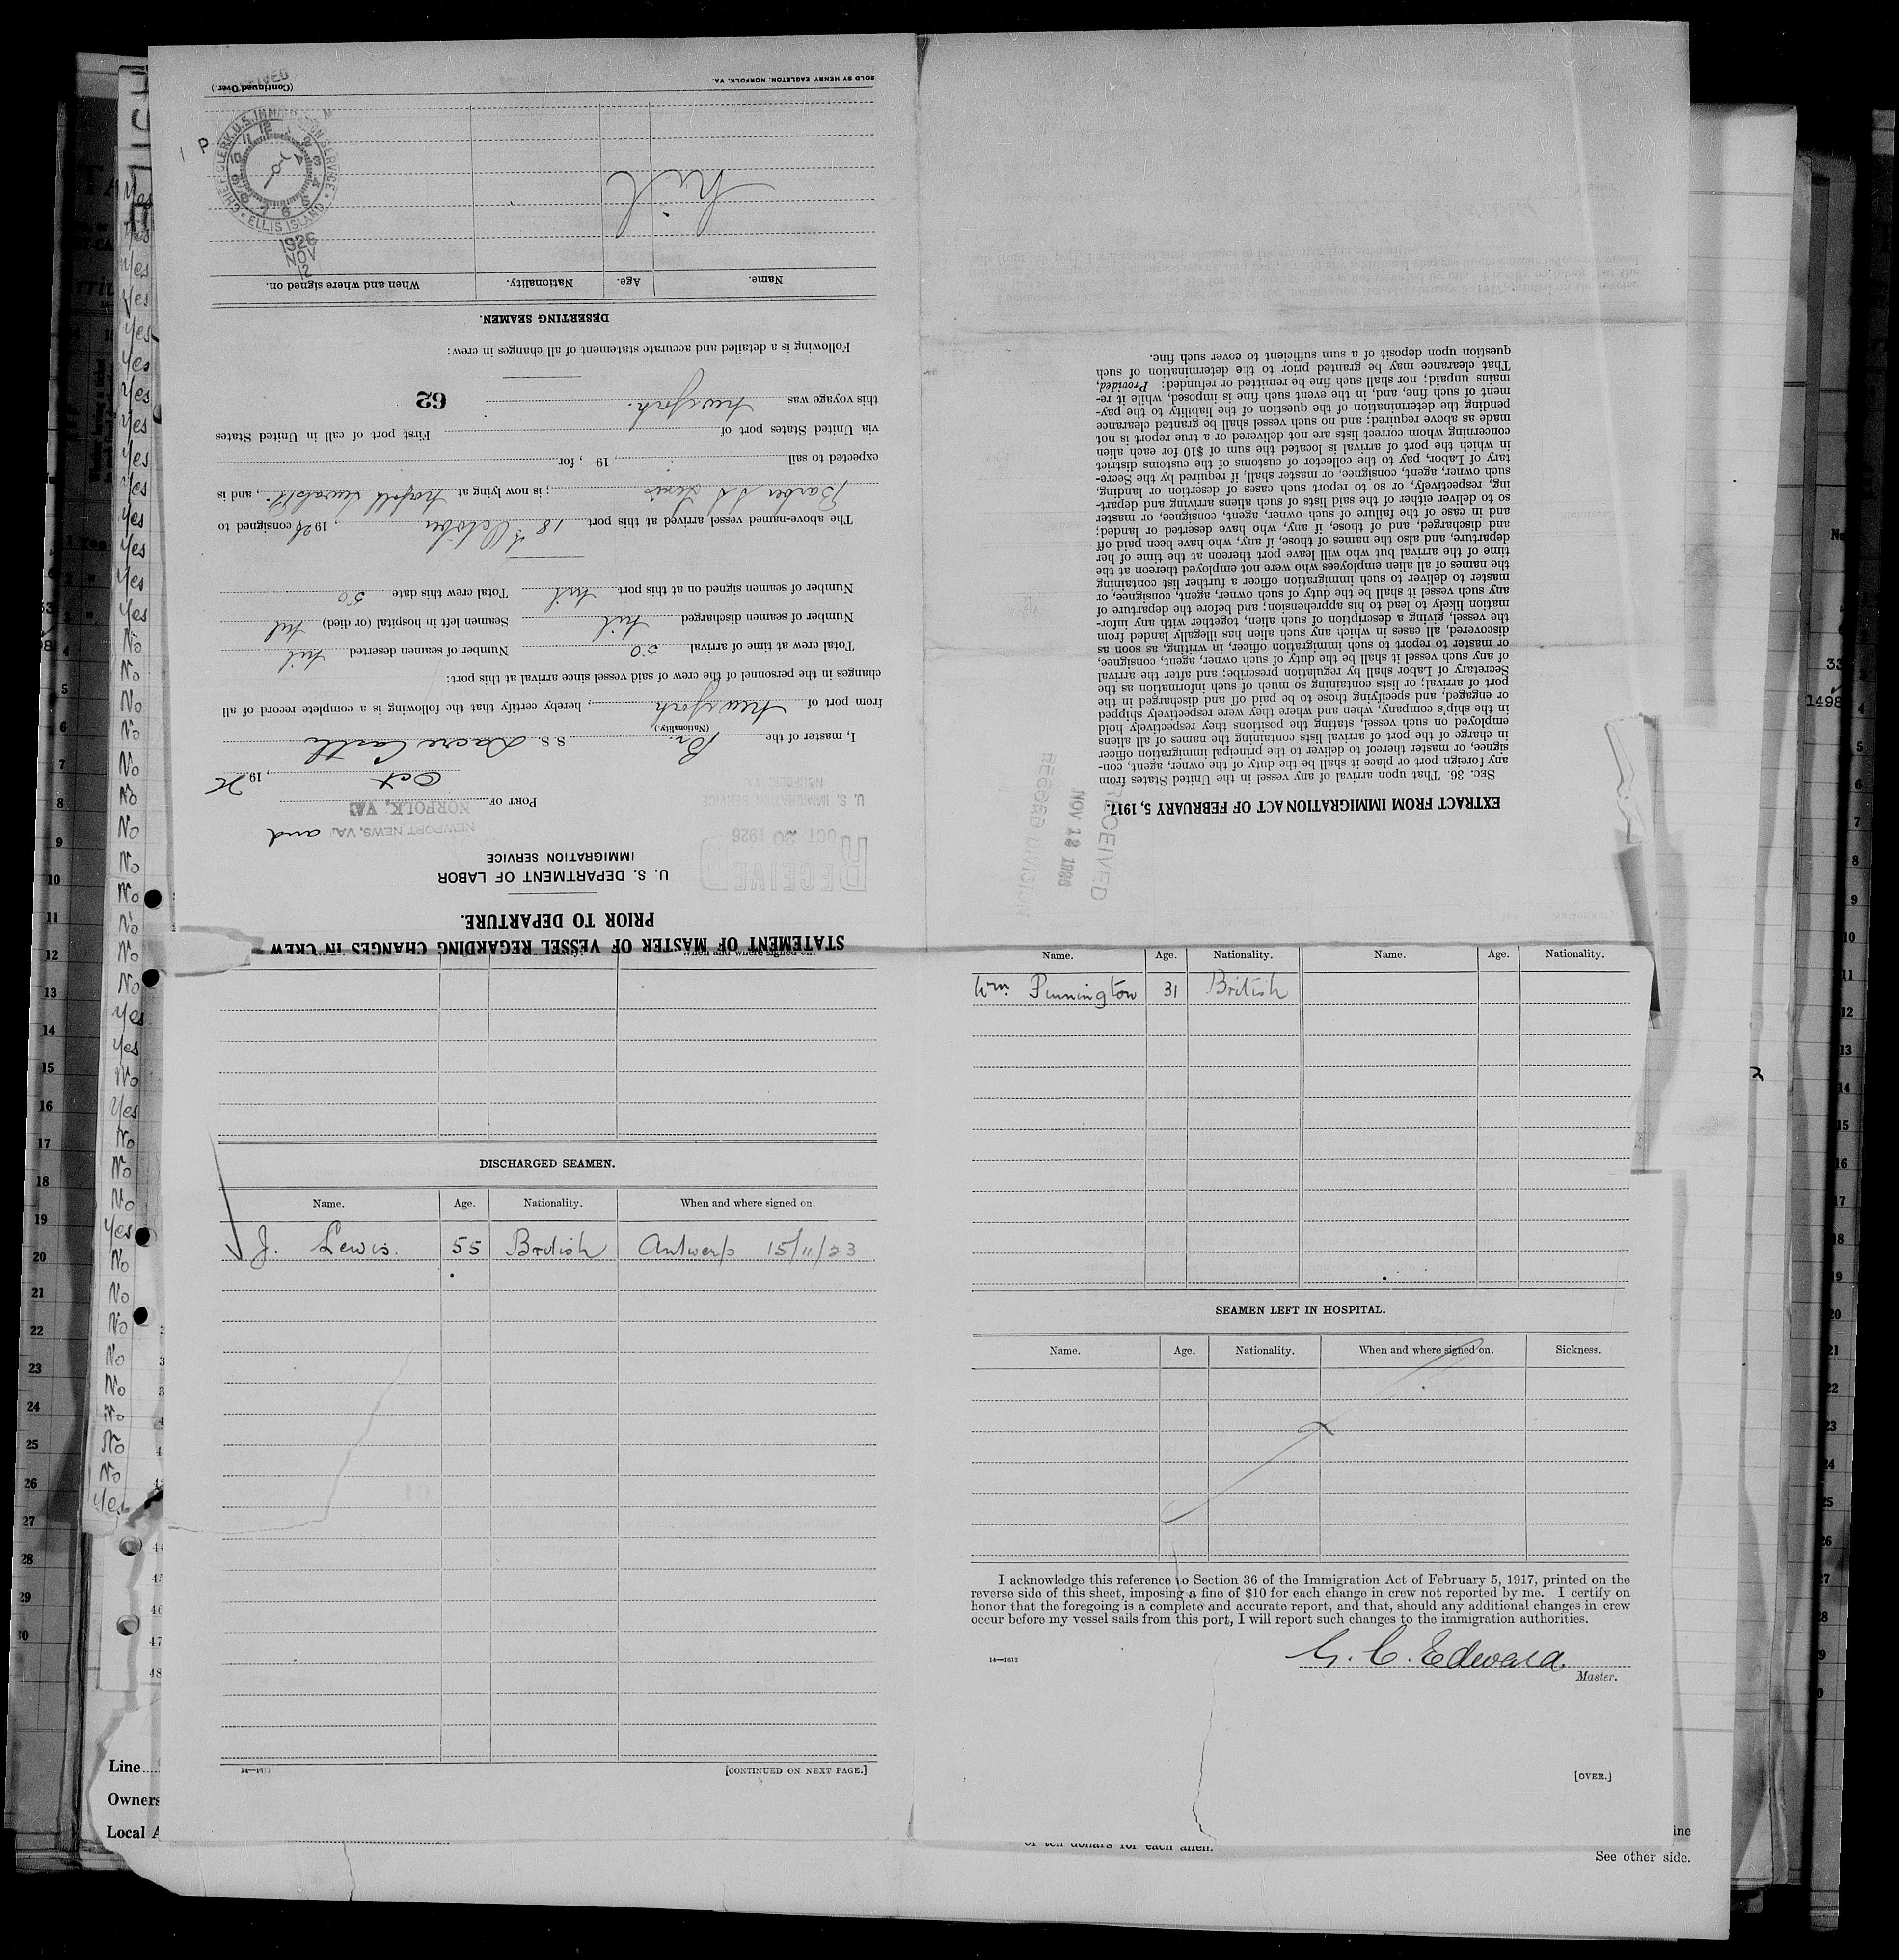 STATEMENT OF MASTER OF VESSEL REGARDING CHANGES IN CREW
PRIOR TO DEPARTURE.
U. S. DEPARTMENT OF LABOR
IMMIGRATION SERVICE
RECEIVED
OCT 20 1926
U. S. IMMIGRATION SERVICE
NORFOLK, VA.
NEWPORT NEWS, VA. and
PORT OF NORFOLK, VA.
Oct, 1926
I, master of the Br. S.S. Dacre Castle
(Nationality.)
from port of New York, hereby certify that the following is a complete record of all
changes in the personnel of the crew of said vessel since arrival at this port:
Total crew at time of arrival 50 Number of seamen deserted nil
Number of seamen discharged nil Seamen left in hospital (or died) nil
Number of seamen signed on at this port nil Total crew this date 50
The above-named vessel arrived at this port 18th October, 1926 consigned to
Barber S S Lines; is now lying at Norfolk, and is
expected to sail, 19 , for
via United States port of First port of call in United States
this voyage was New York.
62
Following is a detailed and accurate statement of all changes in crew:
DESERTING SEAMEN.
Name. Age. Nationality. When and where signed on.
Nil
RECEIVED
CHIEF CLERK, U.S. IMMIGRATION SERVICE
ELLIS ISLAND
1926
NOV
12
P
M
SOLD BY HENRY EAGLETON, NORFOLK, VA.
(Continued Over.)
EXTRACT FROM IMMIGRATION ACT OF FEBRUARY 5, 1917.
SEC. 36. That upon arrival of any vessel in the United States from
any foreign port or place it shall be the duty of the owner, agent, con-
signee, or master thereof to deliver to the principal immigration officer
in charge of the port of arrival lists containing the names of all aliens
employed on such vessel, stating the positions they respectively hold
in the ship's company, when and where they were respectively shipped
or engaged, and specifying those to be paid off and discharged in the
port of arrival; or lists containing so much of such information as the
Secretary of Labor shall by regulation prescribe; and after the arrival
of any such vessel it shall be the duty of such owner, agent, consignee,
or master to report to such immigration officer, in writing, as soon as
discovered, all cases in which any such alien has illegally landed from
the vessel, giving a description of such alien, together with any infor-
mation likely to lead to his apprehension; and before the departure of
any such vessel it shall be the duty of such owner, agent, consignee, or
master to deliver to such immigration officer a further list containing
the names of all alien employees who were not employed thereon at the
time of the arrival but who will leave port thereon at the time of her
departure, and also the names of those, if any, who have been paid off
and discharged, and of those, if any, who have deserted or landed;
and in case of the failure of such owner, agent, consignee, or master
so to deliver either of the said lists of such aliens arriving and depart-
ing, respectively, or so to report such cases of desertion or landing,
such owner, agent, consignee, or master shall, if required by the Secre-
tary of Labor, pay to the collector of customs of the customs district
in which the port of arrival is located the sum of $10 for each alien
concerning whom correct lists are not delivered or a true report is not
made as above required; and no such vessel shall be granted clearance
pending the determination of the question of the liability to the pay-
ment of such fine, and, in the event such fine is imposed, while it re-
mains unpaid; nor shall such fine be remitted or refunded: Provided,
That clearance may be granted prior to the determination of such
question upon deposit of a sum sufficient to cover such fine.
RECEIVED
NOV 12 1926
RECORD DIVISION
When and where signed on.
DISCHARGED SEAMEN.
Name. Age. Nationality. When and where signed on.
J. Lewis. 55 British Antwerp 15/11/23
[CONTINUED ON NEXT PAGE.]
Name. Age. Nationality. Name. Age. Nationality.
Wm. Pennington 31 British
SEAMEN LEFT IN HOSPITAL.
Name. Age. Nationality. When and where signed on. Sickness.
I acknowledge this reference to Section 36 of the Immigration Act of February 5, 1917, printed on the
reverse side of this sheet, imposing a fine of $10 for each change in crew not reported by me. I certify on
honor that the foregoing is a complete and accurate report, and that, should any additional changes in crew
occur before my vessel sails from this port, I will report such changes to the immigration authorities.
G. C. Edward.
Master.
14—1613
[OVER.]
Line
Owners
Local A
of ten dollars for each alien.
ine
See other side.